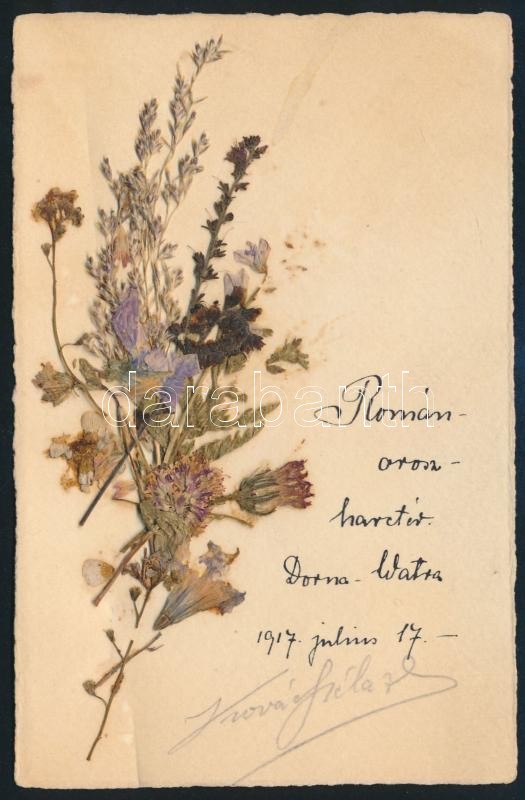 darabanth
Román-
orosz-
harctér.
Dorna-Watra
1917. július 17.-
Kovács Béla